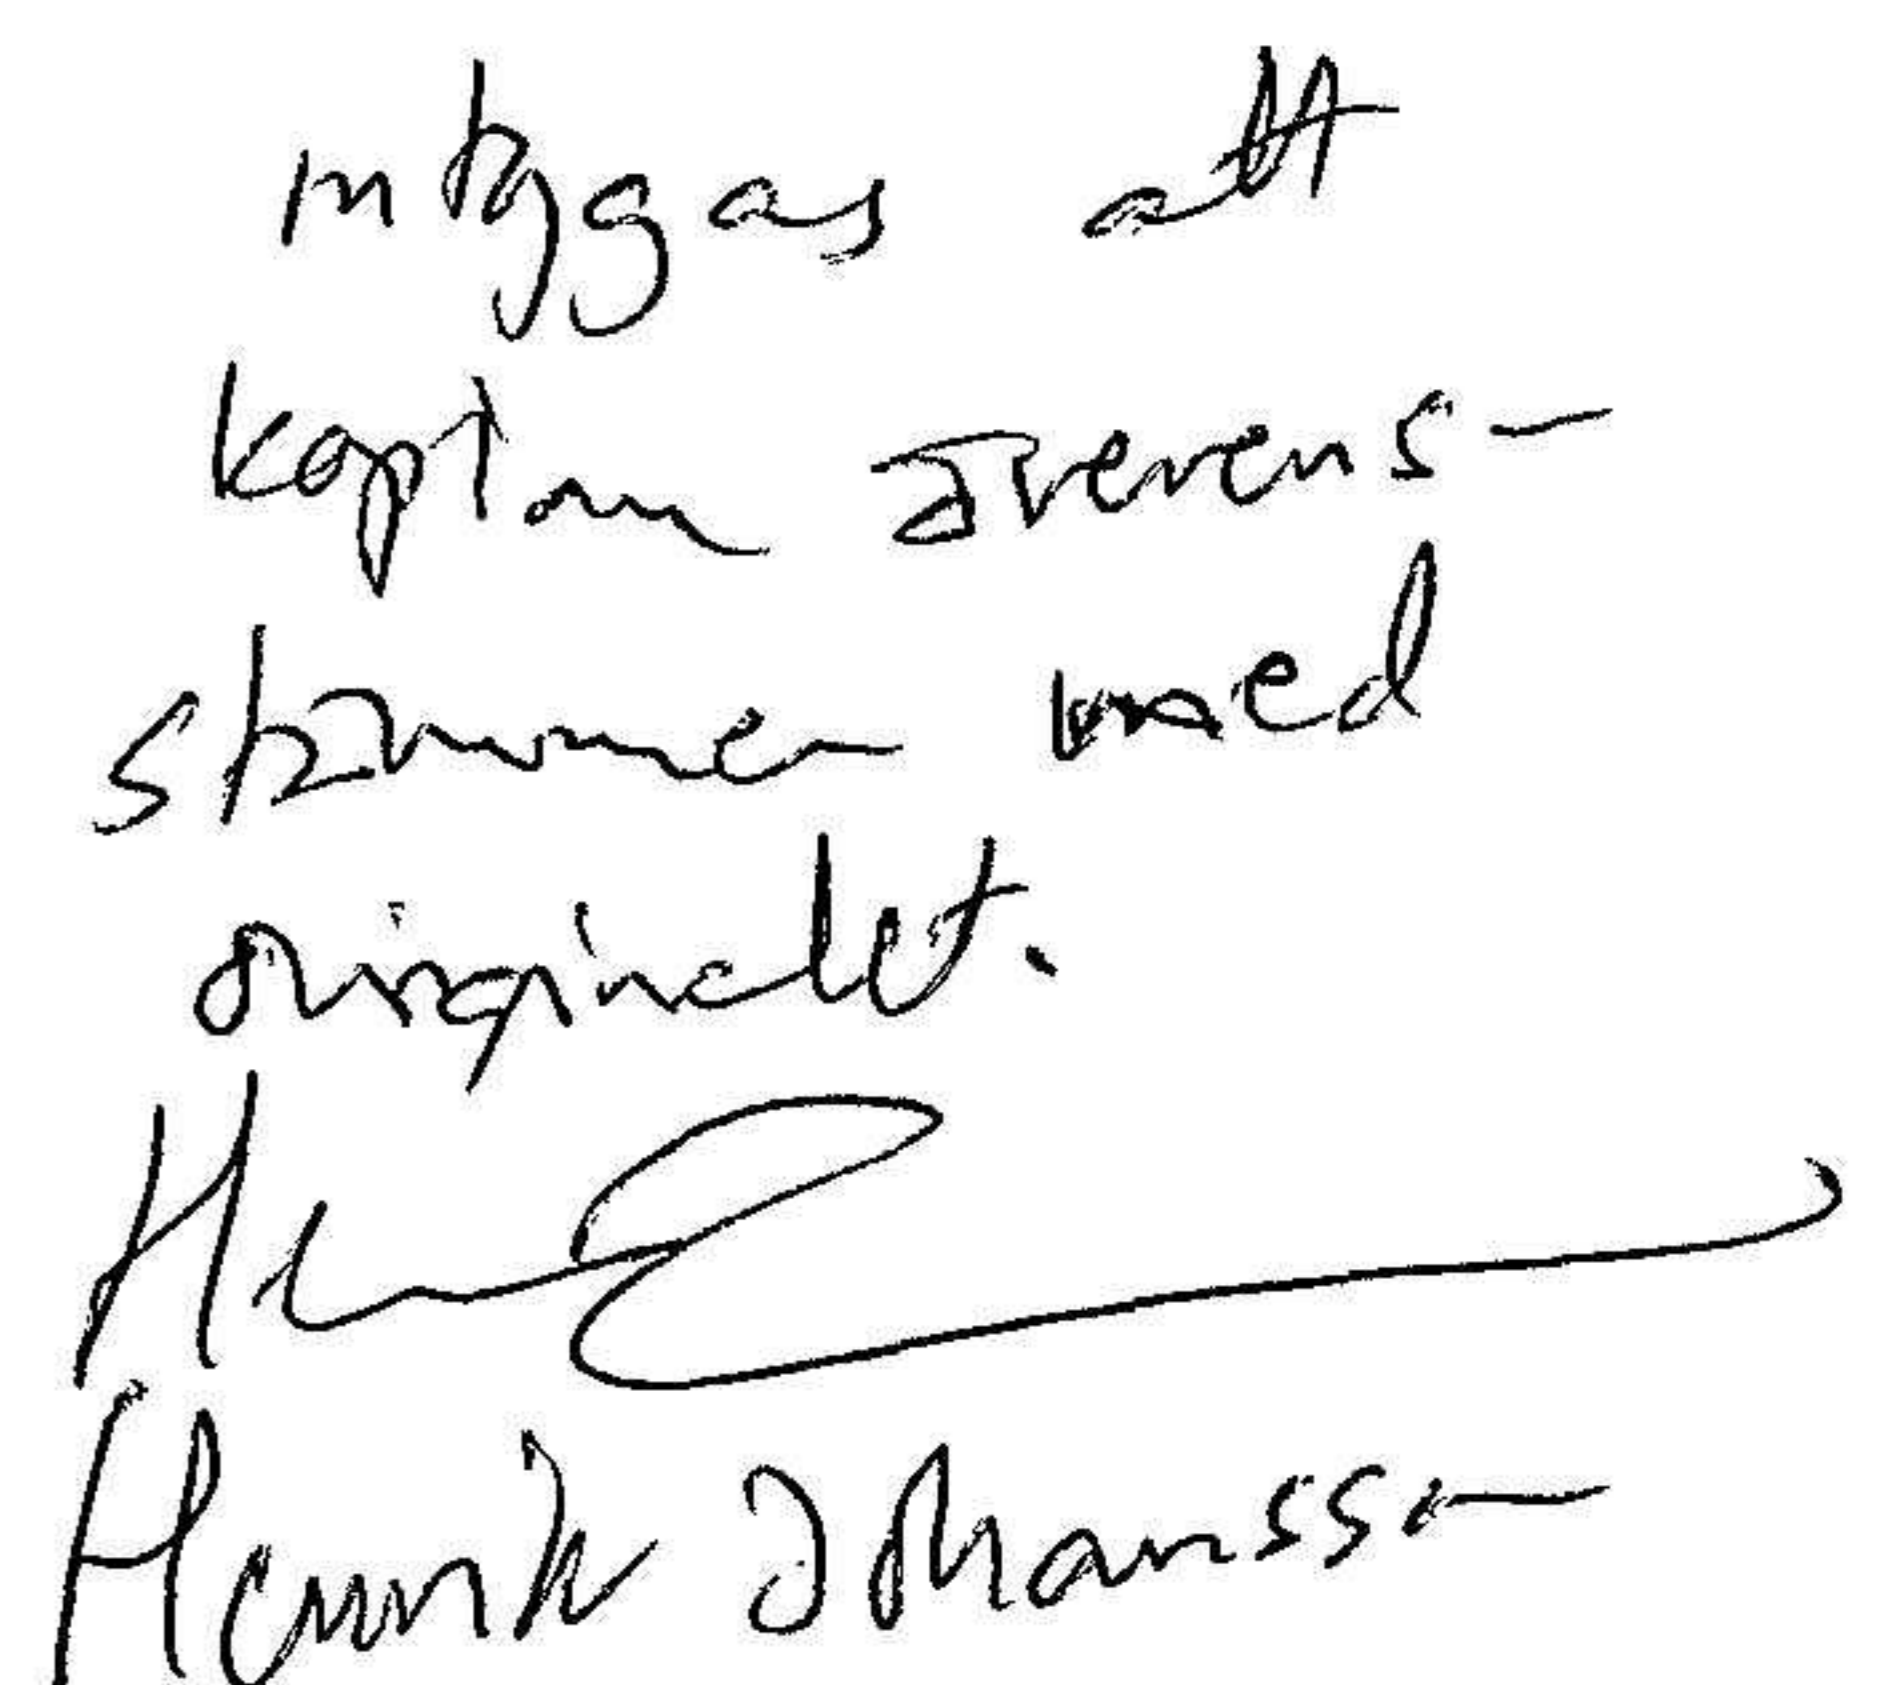 intygas att
kopian överens-
stämmer med
originalet.
Henrik Johansson